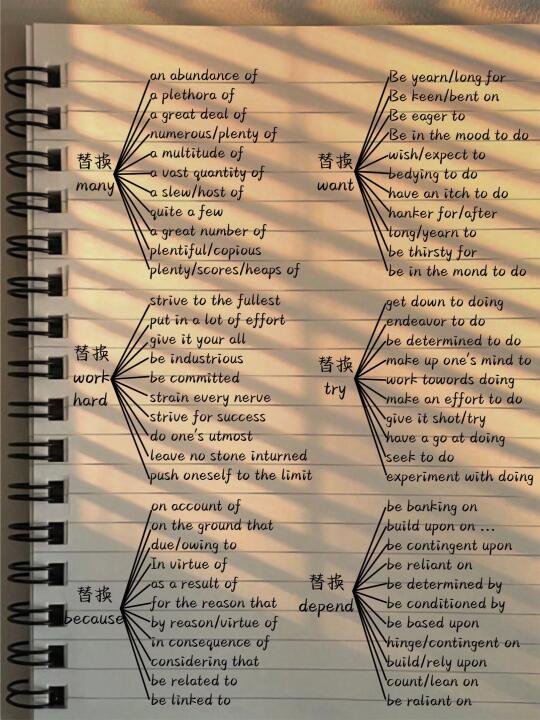 替换
many
an abundance of
a plethora of
a great deal of
numerous/plenty of
a multitude of
a vast quantity of
a slew/host of
quite a few
a great number of
plentiful/copious
plenty/scores/heaps of
替换
want
Be yearn/long for
Be keen/bent on
Be eager to
Be in the mood to do
wish/expect to
bedying to do
have an itch to do
hanker for/after
long/yearn to
be thirsty for
be in the mond to do
替换
work
hard
strive to the fullest
put in a lot of effort
give it your all
be industrious
be committed
strain every nerve
strive for success
do one's utmost
leave no stone inturned
push oneself to the limit
替换
try
get down to doing
endeavor to do
be determined to do
make up one's mind to
work towords doing
make an effort to do
give it shot/try
have a go at doing
seek to do
experiment with doing
替换
because
on account of
on the ground that
due/owing to
In virtue of
as a result of
for the reason that
by reason/virtue of
in consequence of
considering that
be related to
be linked to
替换
depend
be banking on
build upon on ...
be contingent upon
be reliant on
be determined by
be conditioned by
be based upon
hinge/contingent on
build/rely upon
count/lean on
be raliant on